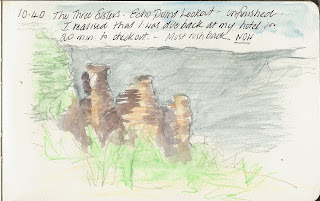 10.40 The Three Sisters - Echo Point Lookout - unfinished.
I realised that I was due back at my hotel in
20 min to checkout. - Must rush back NOW